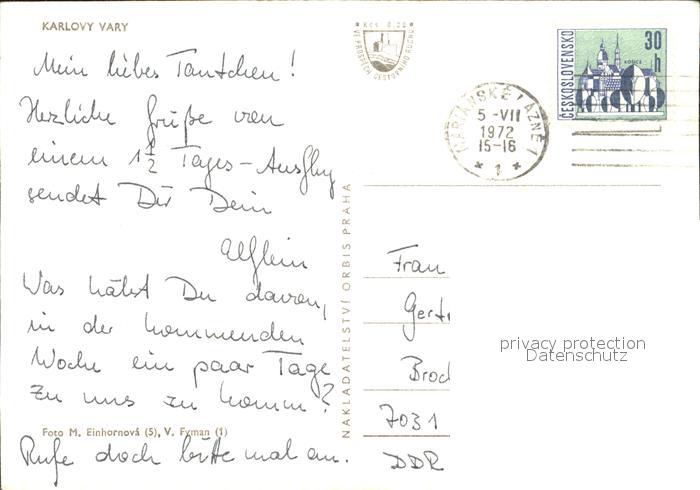 KARLOVY VARY
Mein liebes Tantchen!
Herzliche Grüße von
einem 1 1/2 Tages-Ausflug
sendet Dir Dein
Elflein
Was hälst Du davon,
in der kommenden
Woche ein paar Tage
zu uns zu komm?
Foto M. Einhornová (5), V. Fyman (1)
Rufe doch bitte mal an.
NAKLADATELSTVÍ ORBIS PRAHA
Kčs 0,20
VE PROSPĚCH CESTOVNÍHO RUCHU
MARIÁNSKÉ LÁZNĚ 1
5 -VII
1972
15-16
* 1 *
ČESKOSLOVENSKO
30 h
KOŠICE
Frau
Gert
Brod
7031
DDR
privacy protection
Datenschutz